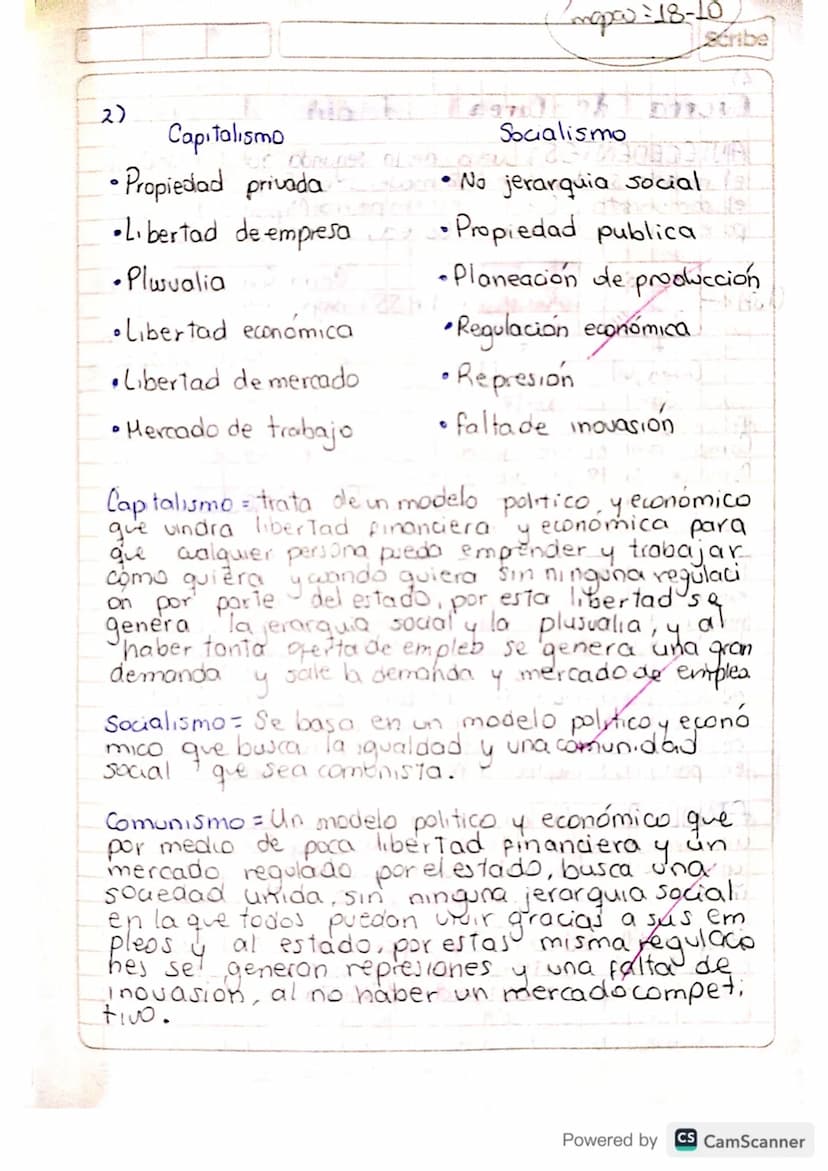 mapa = 18-10
Scribe
2)
Capitalismo Socialismo
• Propiedad privada • No jerarquia social
• Libertad de empresa • Propiedad publica
• Plusvalia • Planeación de producción
• Libertad económica • Regulación económica
• Libertad de mercado • Represión
• Mercado de trabajo • falta de inovasión
Capitalismo = trata de un modelo politico y económico
que vindra libertad financiera y económica para
que cualquier persona pueda emprender y trabajar
como quiera y cuando quiera sin ninguna regulaci
on por parte del estado, por esta libertad se
genera la jerarquia social y la plusvalia, y al
haber tanta oferta de empleo se genera una gran
demanda y sale la demanda y mercado de emplea
Socialismo = Se basa en un modelo politico y econó
mico que busca la igualdad y una comunidad
social que sea comunista.
Comunismo = Un modelo politico y económico que
por medio de poca libertad financiera y un
mercado regulado por el estado, busca una
sociedad unida, sin ninguna jerarquia social
en la que todos puedan vivir gracias a sus em
pleos y al estado, por estas misma regulacio
nes se generan represiones y una falta de
inovasión, al no haber un mercado competi
tivo.
Powered by CS CamScanner